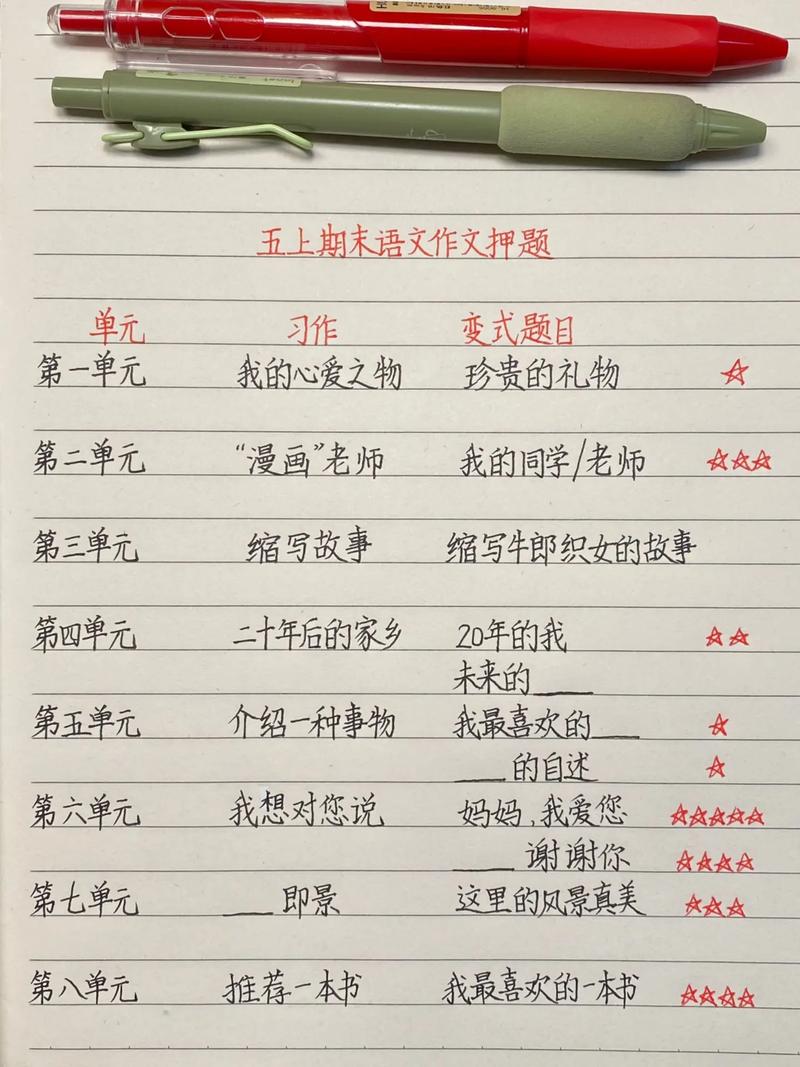 五上期末语文作文押题
单元 习作 变式题目
第一单元 我的心爱之物 珍贵的礼物 ☆
第二单元 “漫画”老师 我的同学/老师 ☆☆☆
第三单元 缩写故事 缩写牛郎织女的故事
第四单元 二十年后的家乡 20年的我 ☆☆
未来的____
第五单元 介绍一种事物 我最喜欢的____ ☆
____的自述 ☆
第六单元 我想对您说 妈妈,我爱您 ☆☆☆☆☆
____谢谢你 ☆☆☆☆
第七单元 ____即景 这里的风景真美 ☆☆☆
第八单元 推荐一本书 我最喜欢的一本书 ☆☆☆☆